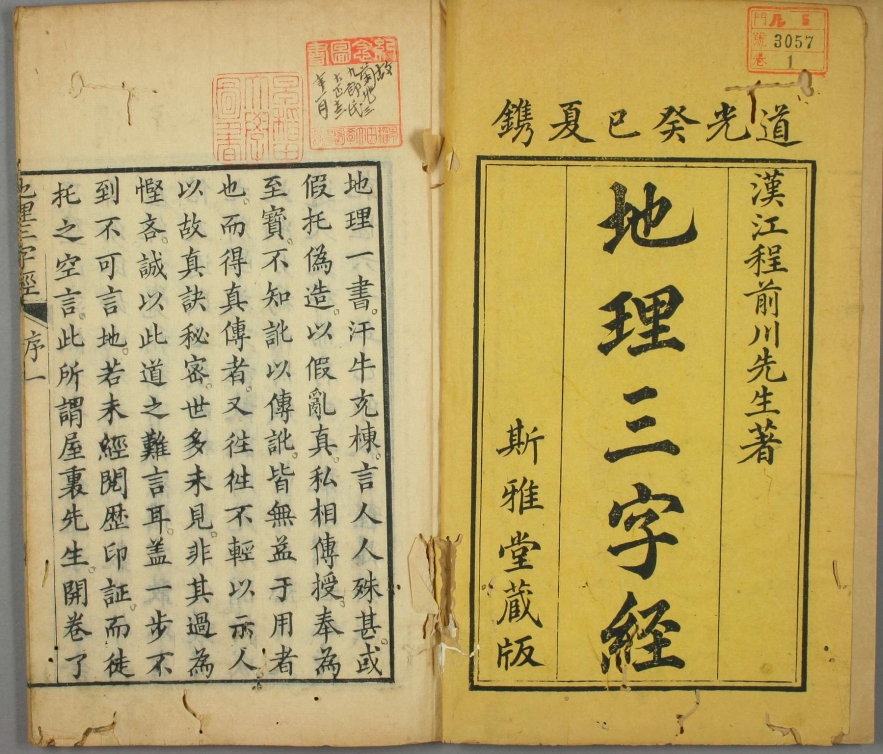 道光癸巳夏鐫
漢江程前川先生著
地理三字経
斯雅堂蔵版
門 ル 5
號 3057
巻 1
地理一書。汗牛充棟。言人人殊甚。或
假托偽造。以假亂真。私相傳授。奉為
至寶。不知訛以傳訛。皆無益于用者
也。而得真傳者。又徃徃不輕以示人
以故真訣秘密。世多未見。非其過為
慳吝。誠以此道之難言耳。蓋一步不
到不可言地。若未經閱歴印証。而徒
托之空言。此所謂屋裏先生。開卷了
地理三字經
序一